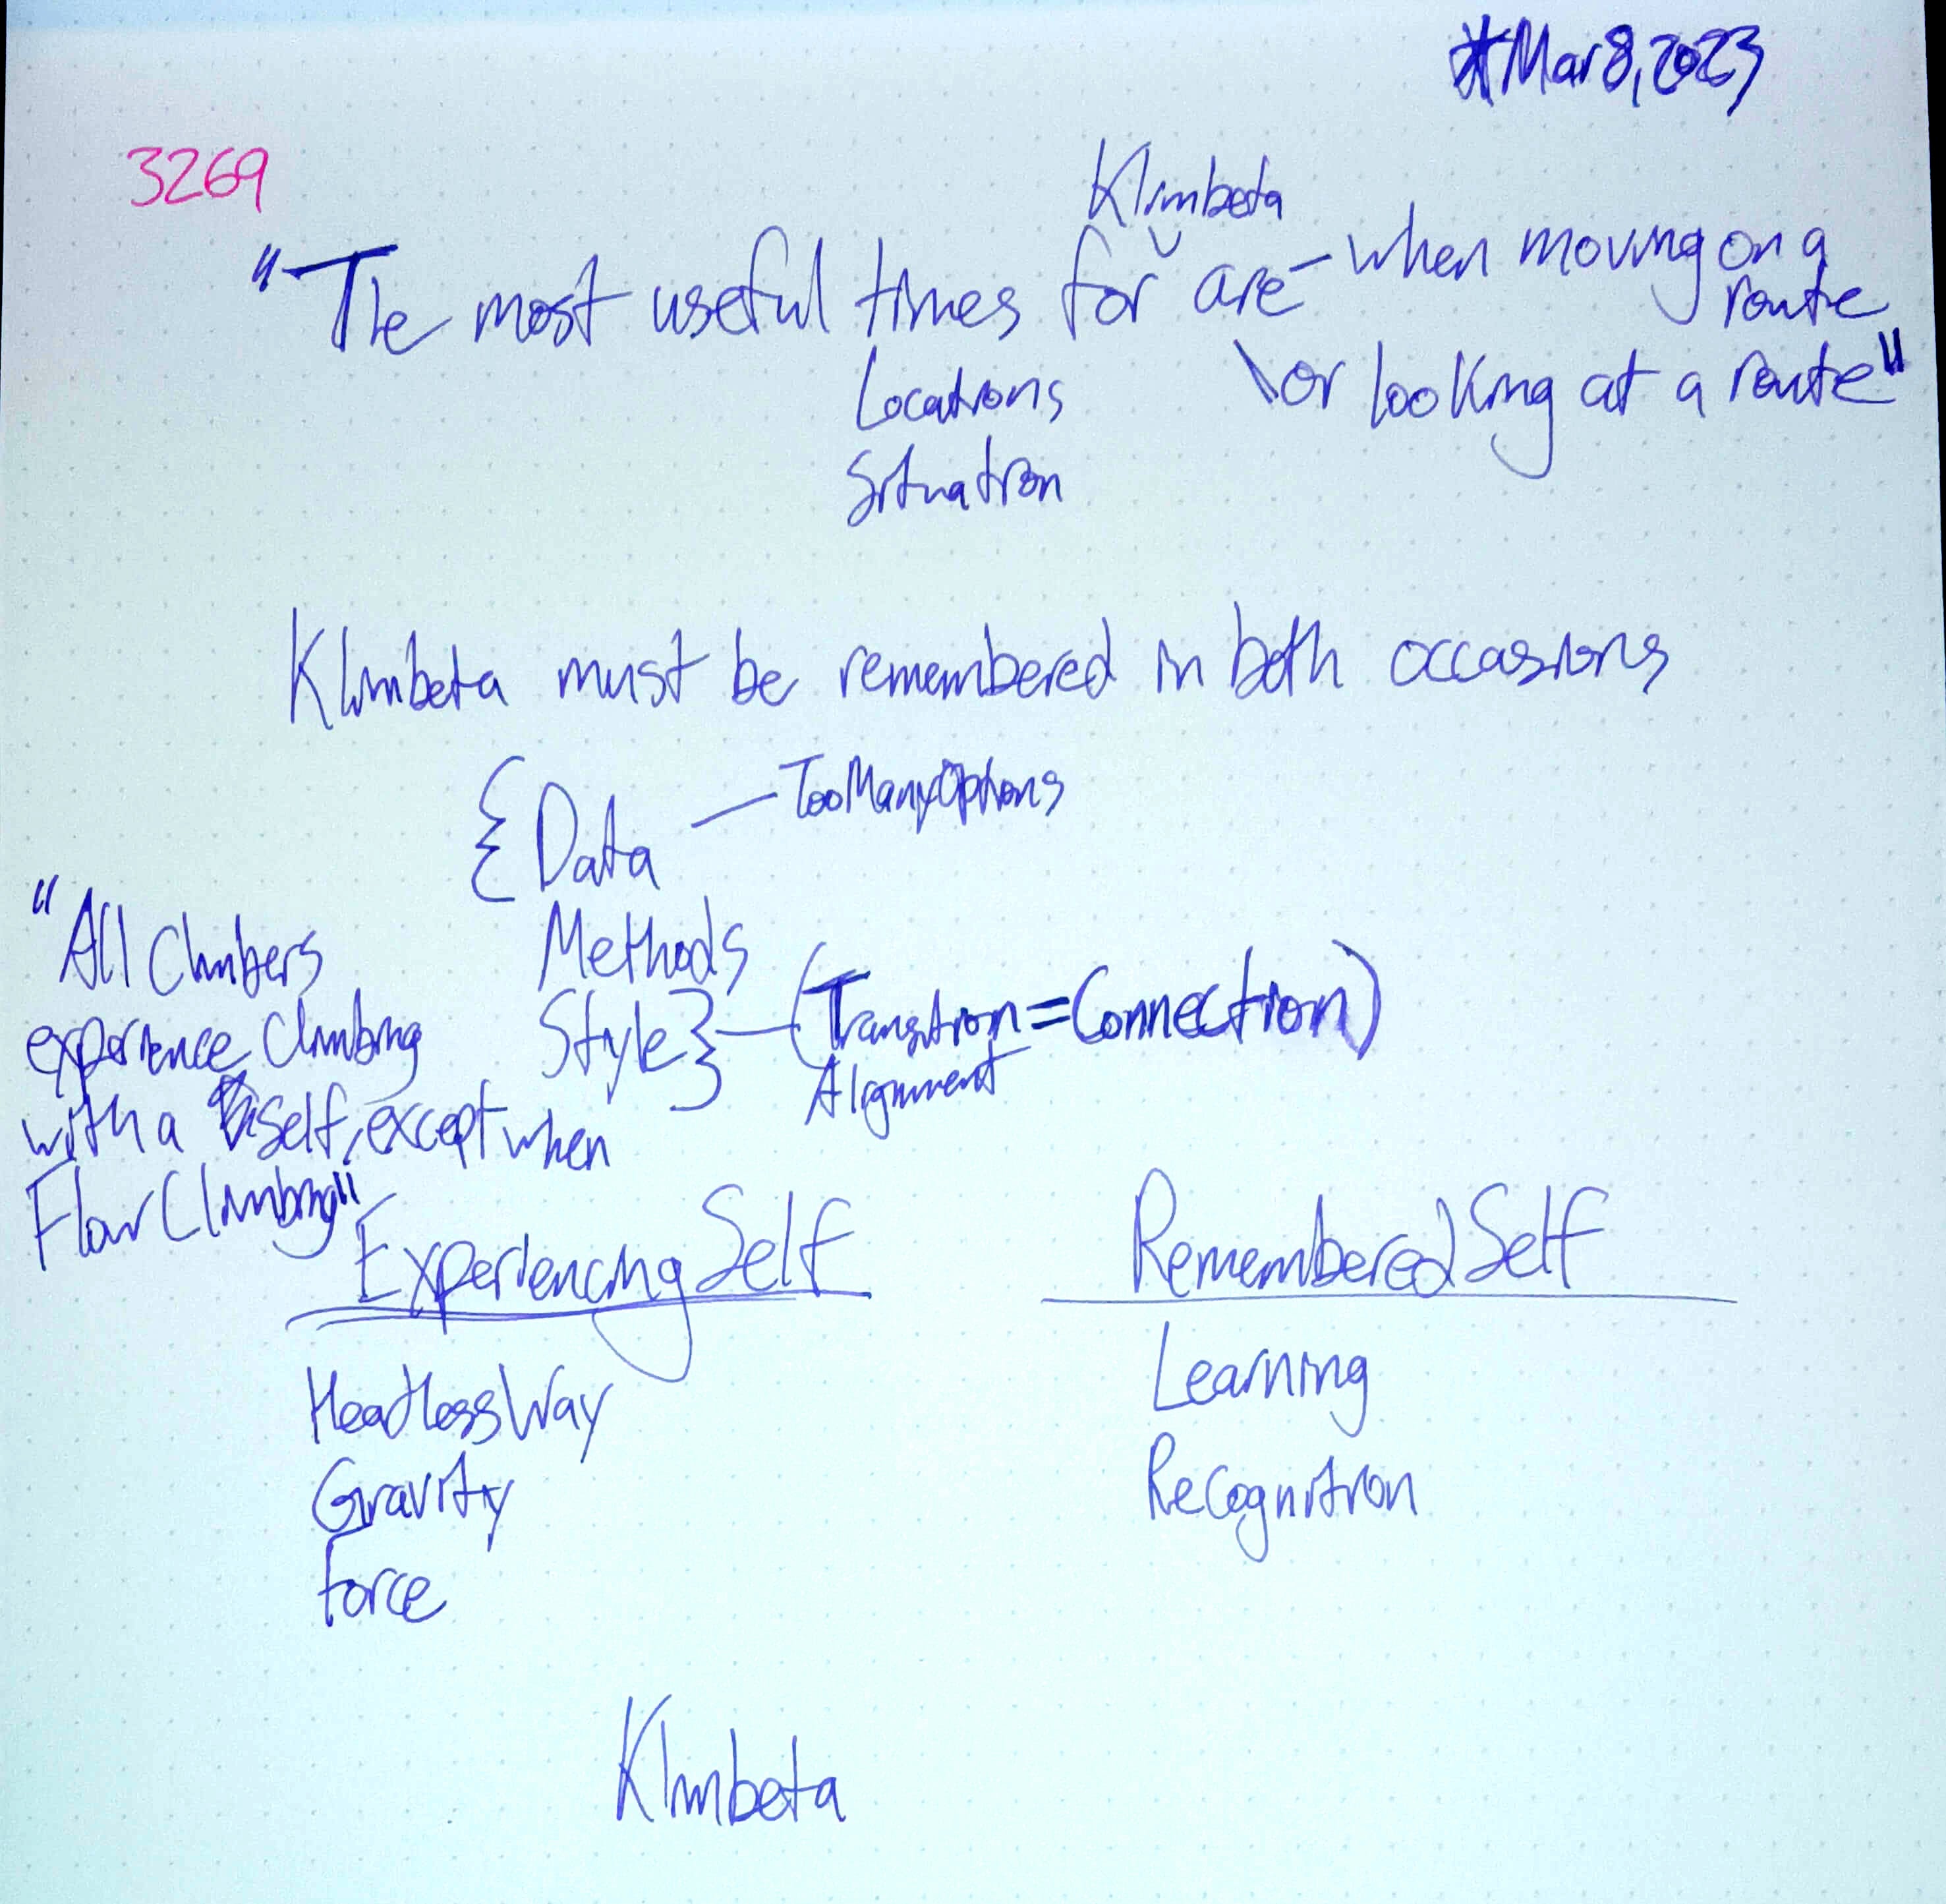 *Mar 8, 2023
3269
Klimbeta
"The most useful times for ˇ are – when moving on a
route
Locations \or looking at a route"
Situation
Klimbeta must be remembered in both occasions
{Data — TooManyOptions
Methods
Style} — (Transition = Connection)
Alignment
"All Climbers
experience Climbing
with a self, except when
FlowClimbing"
ExperiencingSelf
HeadlessWay
Gravity
Force
RememberedSelf
Learning
Recognition
Klimbeta